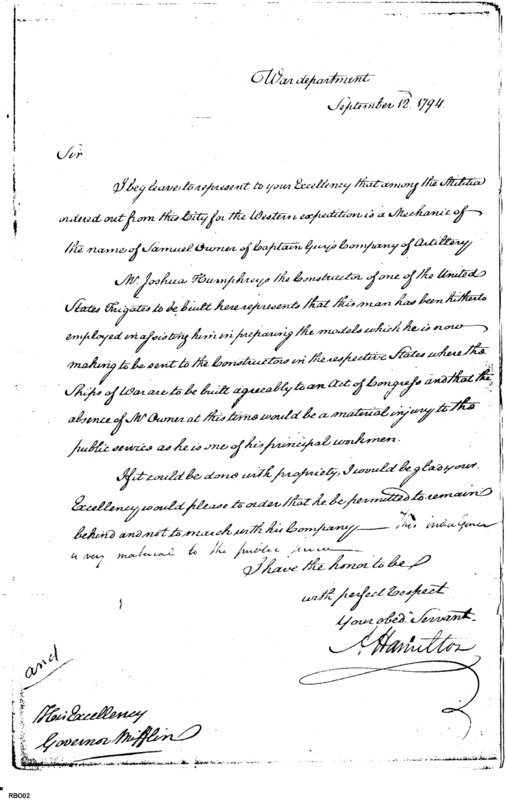 War department
September 12.d 1794.
Sir
I beg leave to represent to your Excellency that among the Militia
ordered out from this City for the Western expedition is a Mechanic of
the name of Samuel Owner of Captain Guy's Company of Artillery,
Mr. Joshua Humphreys the Constructor of one of the United
States Frigates to be built here represents that this man has been hitherto
employed in assisting him in preparing the models which he is now
making to be sent to the Constructors in the respective States where the
Ships of War are to be built agreeably to an Act of Congress and that the
absence of Mr Owner at this time would be a material injury to the
public service as he is one of his principal workmen.
If it could be done with propriety, I would be glad your
Excellency would please to order that he be permitted to remain
behind and not to march with his Company — This indulgence
is very material to the public
I have the honor to be
with perfect respect
Your obed.t Servant.
A. Hamilton
and
His Excellency
Governor Mifflin
RBO02